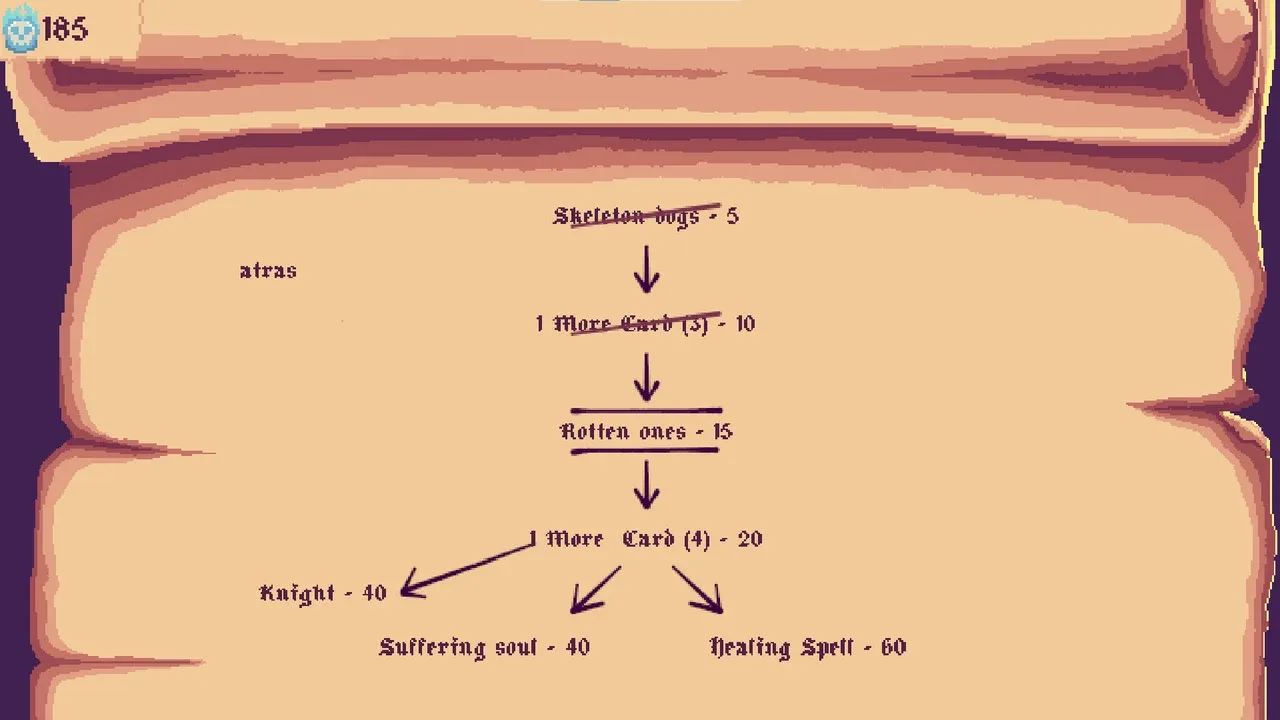 185
Skeleton dogs - 5
atras
1 More Card (3) - 10
Rotten ones - 15
1 More Card (4) - 20
Knight - 40
Suffering soul - 40
Healing Spell - 60